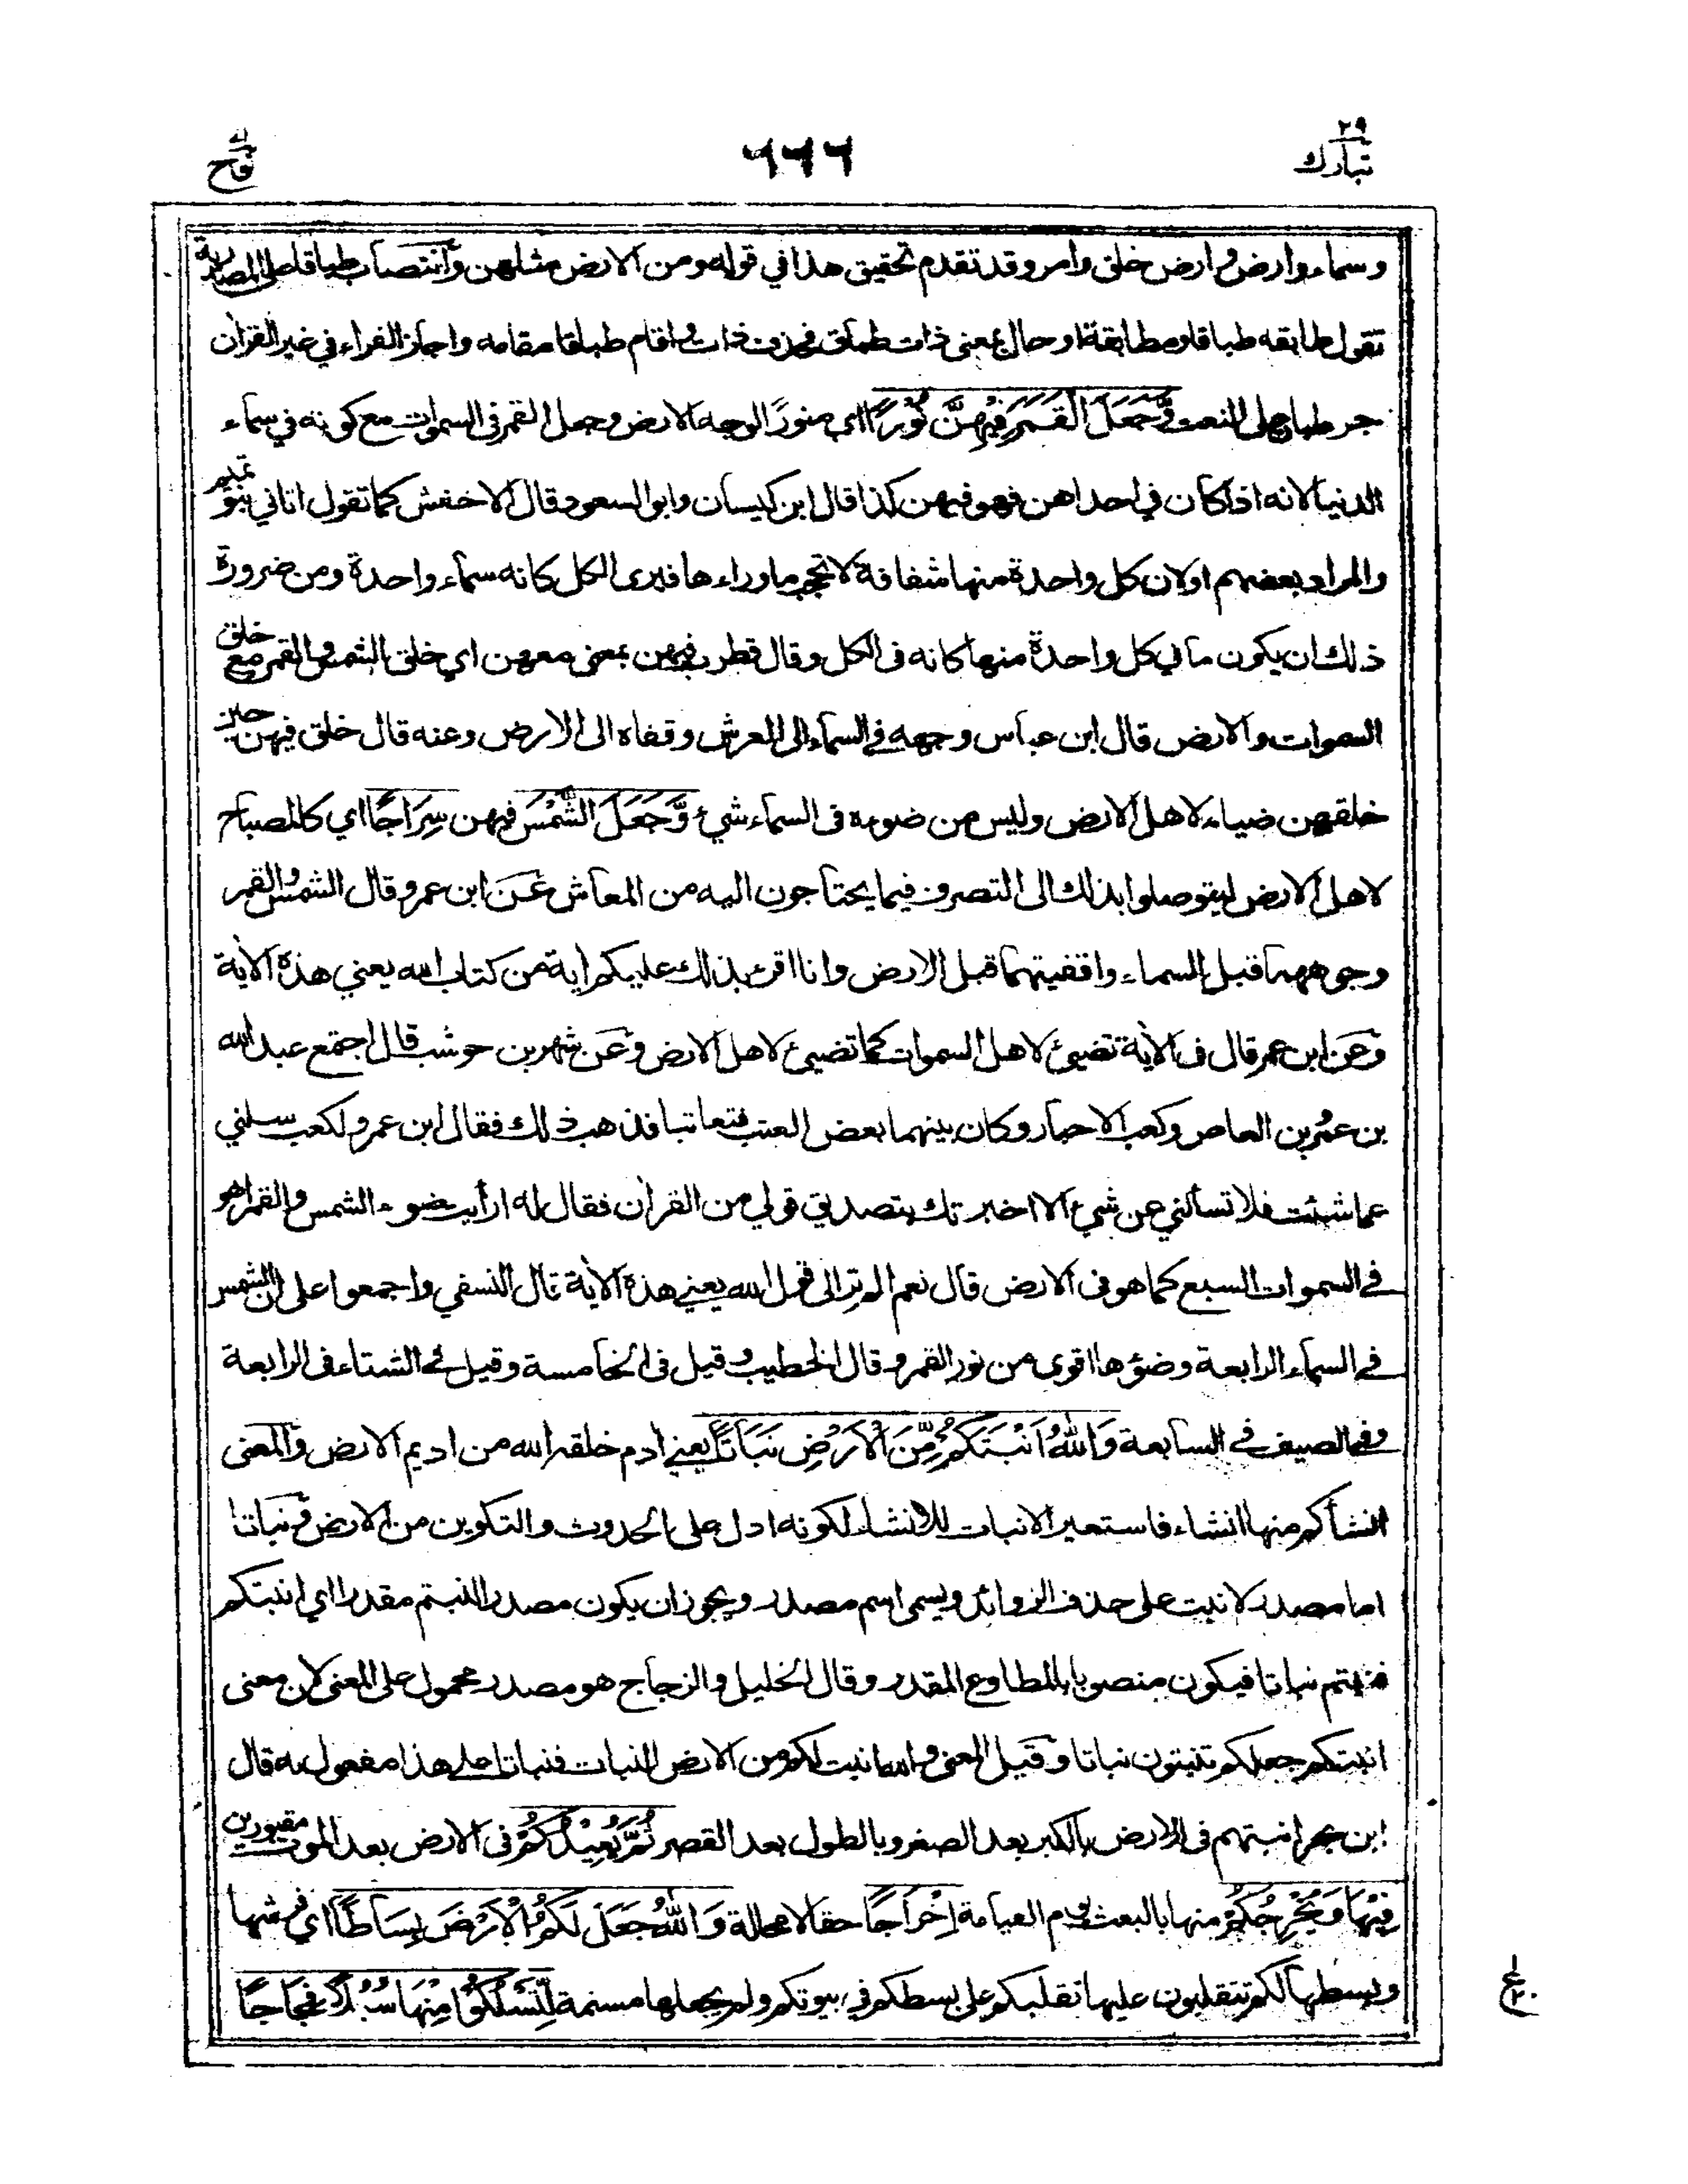 ٢٩
تبارك
٦٦٦
نوح
وسماء وارض وارض خلق وامر وقد تقدم تحقيق هذا في قوله ومن الارض مثلهن وانتصاب طباقا على المصدرية
تقول طابقه طباقا ومطابقة او حال بمعنى ذات طباق فحذف ذات واقام طباقا مقامه واجاز الفراء في غير القرآن
جر طباق على النعت وَّجَعَلَ الْقَمَرَ فِيْهِنَّ نُوْرًا اي منورًا لوجه الارض وجعل القمر فى السموات مع كونه في سماء
الدنيا لانه اذا كان في احداهن فهو فيهن كذا قال ابن كيسان وابو السعود قال الاخفش كما تقول اتاني بنو تميم
والمراد بعضهم او لان كل واحدة منها شفافة لا تحجب ما وراءها فيرى الكل كانه سماء واحدة ومن ضرورة
ذلك ان يكون ما في كل واحدة منها كانه فى الكل وقال قطرب فيهن بمعنى معهن اي خلق الشمس والقمر مع خلق
السموات والارض قال ابن عباس وجهه في السماء الى العرش وقفاه الى الارض وعنه قال خلق فيهن حين
خلقهن ضياء لاهل الارض وليس من ضوءه فى السماء شيء وَّجَعَلَ الشَّمْسَ فيهن سِرَاجًا اي كالمصباح
لاهل الارض ليتوصلوا بذلك الى التصرف فيما يحتاجون اليه من المعاش عن ابن عمرو قال الشمس والقمر
وجوههما قبل السماء واقفيتهما قبل الارض وانا اقرء بذلك عليكم اية من كتاب الله يعني هذه الآية
وعن ابن عمر قال فى الآية تضيئ لاهل السموات كما تضيئ لاهل الارض وعن شهر بن حوشب قال اجتمع عبد الله
بن عمرو بن العاص وكعب الاحبار وكان بينهما بعض العتب فتعاتبا فذهب ذلك فقال ابن عمرو لكعب سلني
عما شئت فلا تسألني عن شيء الا اخبرتك بتصديق قولي من القرآن فقال له ارأيت ضوء الشمس والقمر اهو
في السموات السبع كما هو فى الارض قال نعم الم تر الى قول الله يعني هذه الآية قال النسفي واجمعوا على ان الشمس
في السماء الرابعة وضؤها اقوى من نور القمر وقال الخطيب وقيل فى الخامسة وقيل في الشتاء فى الرابعة
وفي الصيف في السابعة وَاللّٰهُ اَنْبَتَكُمْ مِّنَ الْاَرْضِ نَبَاتًا يعني ادم خلقه الله من اديم الارض والمعنى
انشأكم منها انشاء فاستعير الانبات للانشاء لكونه ادل على الحدوث والتكوين من الارض ونباتا
اما مصدر لانبت على حذف الزوائد ويسمى اسم مصدر ويجوز ان يكون مصدرا لنبتم مقدرا اي انبتكم
فنبتم نباتا فيكون منصوبا بالمطاوع المقدر وقال الخليل والزجاج هو مصدر محمول على المعنى لان معنى
انبتكم جعلكم تنبتون نباتا وقيل المعنى والله انبت لكم من الارض النبات فنباتا على هذا مفعول به قال
ابن بحر انبتهم فى الارض بالكبر بعد الصغر وبالطول بعد القصر ثُمَّ يُعِيْدُكُمْ فى الارض بعد الموت مقبورين
فِيْهَا وَيُخْرِجُكُمْ منها بالبعث يوم القيامة اِخْرَاجًا حقا لا محالة وَاللّٰهُ جَعَلَ لَكُمُ الْاَرْضَ بِسَاطًا اي فرشها
وبسطها لكم تتقلبون عليها تقلبكم على بسطكم في بيوتكم ولم يجعلها مسنمة لِّتَسْلُكُوْا مِنْهَا سُبُلًا فِجَاجًا